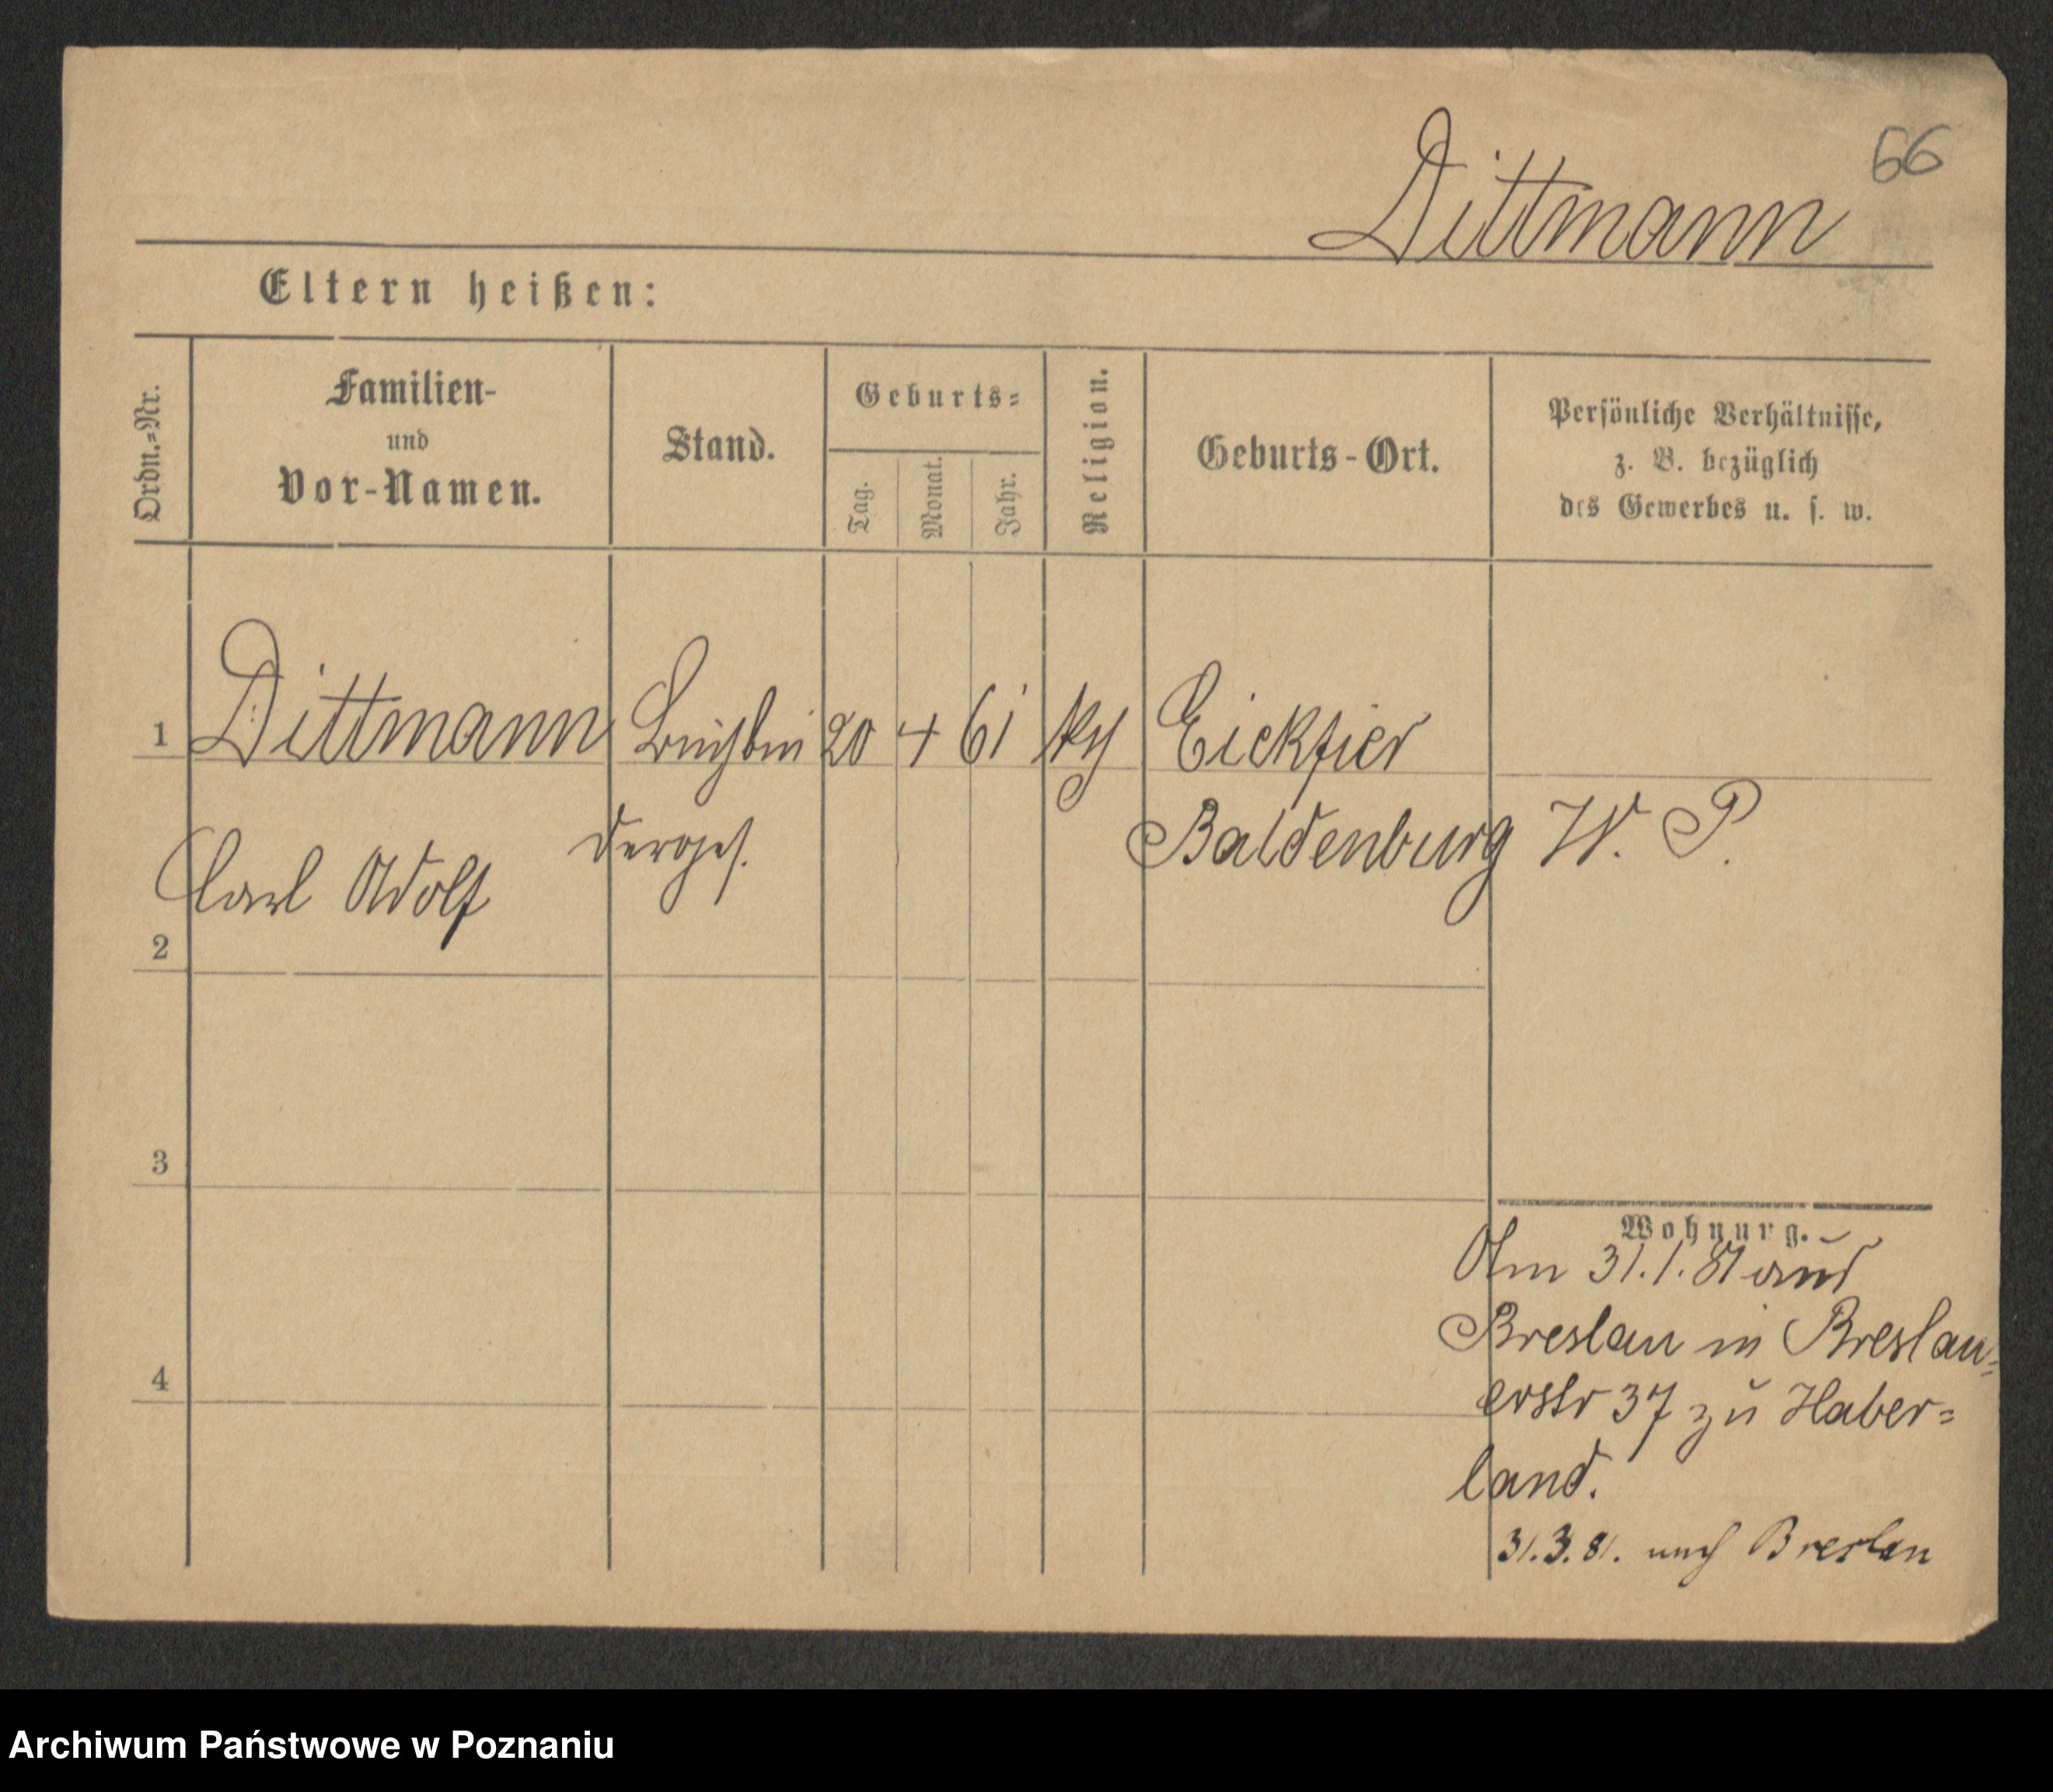 66
Dittmann
Eltern heißen:
Ordn.=Nr.
Familien-
und
Vor-Namen.
Stand.
Geburts=
Tag.
Monat.
Jahr.
Religion.
Geburts-Ort.
Persönliche Verhältnisse,
z. B. bezüglich
des Gewerbes u. s. w.
1 Dittmann Buchbin 20 4 61 Eickfier
Carl Adolf derges. Baldenburg W. P.
2
3
4
Wohnung.
Am 31.1.81 aus
Breslau in Breslau=
erstr 37 zu Haber=
land.
31.3.81. nach Breslau
Archiwum Państwowe w Poznaniu